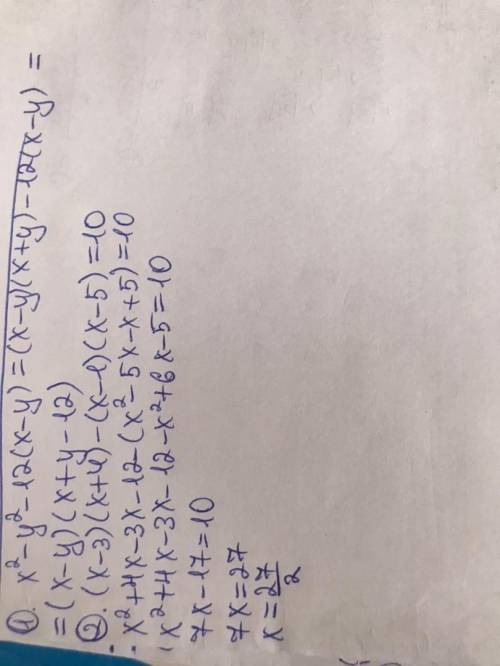 1. x²-y²-12(x-y)=(x-y)(x+y)-12(x-y)=
=(x-y)(x+y-12)
2. (x-3)(x+4)-(x-1)(x-5)=10
x²+4x-3x-12-(x²-5x-x+5)=10
x²+4x-3x-12-x²+6x-5=10
7x-17=10
7x=27
x=27/2